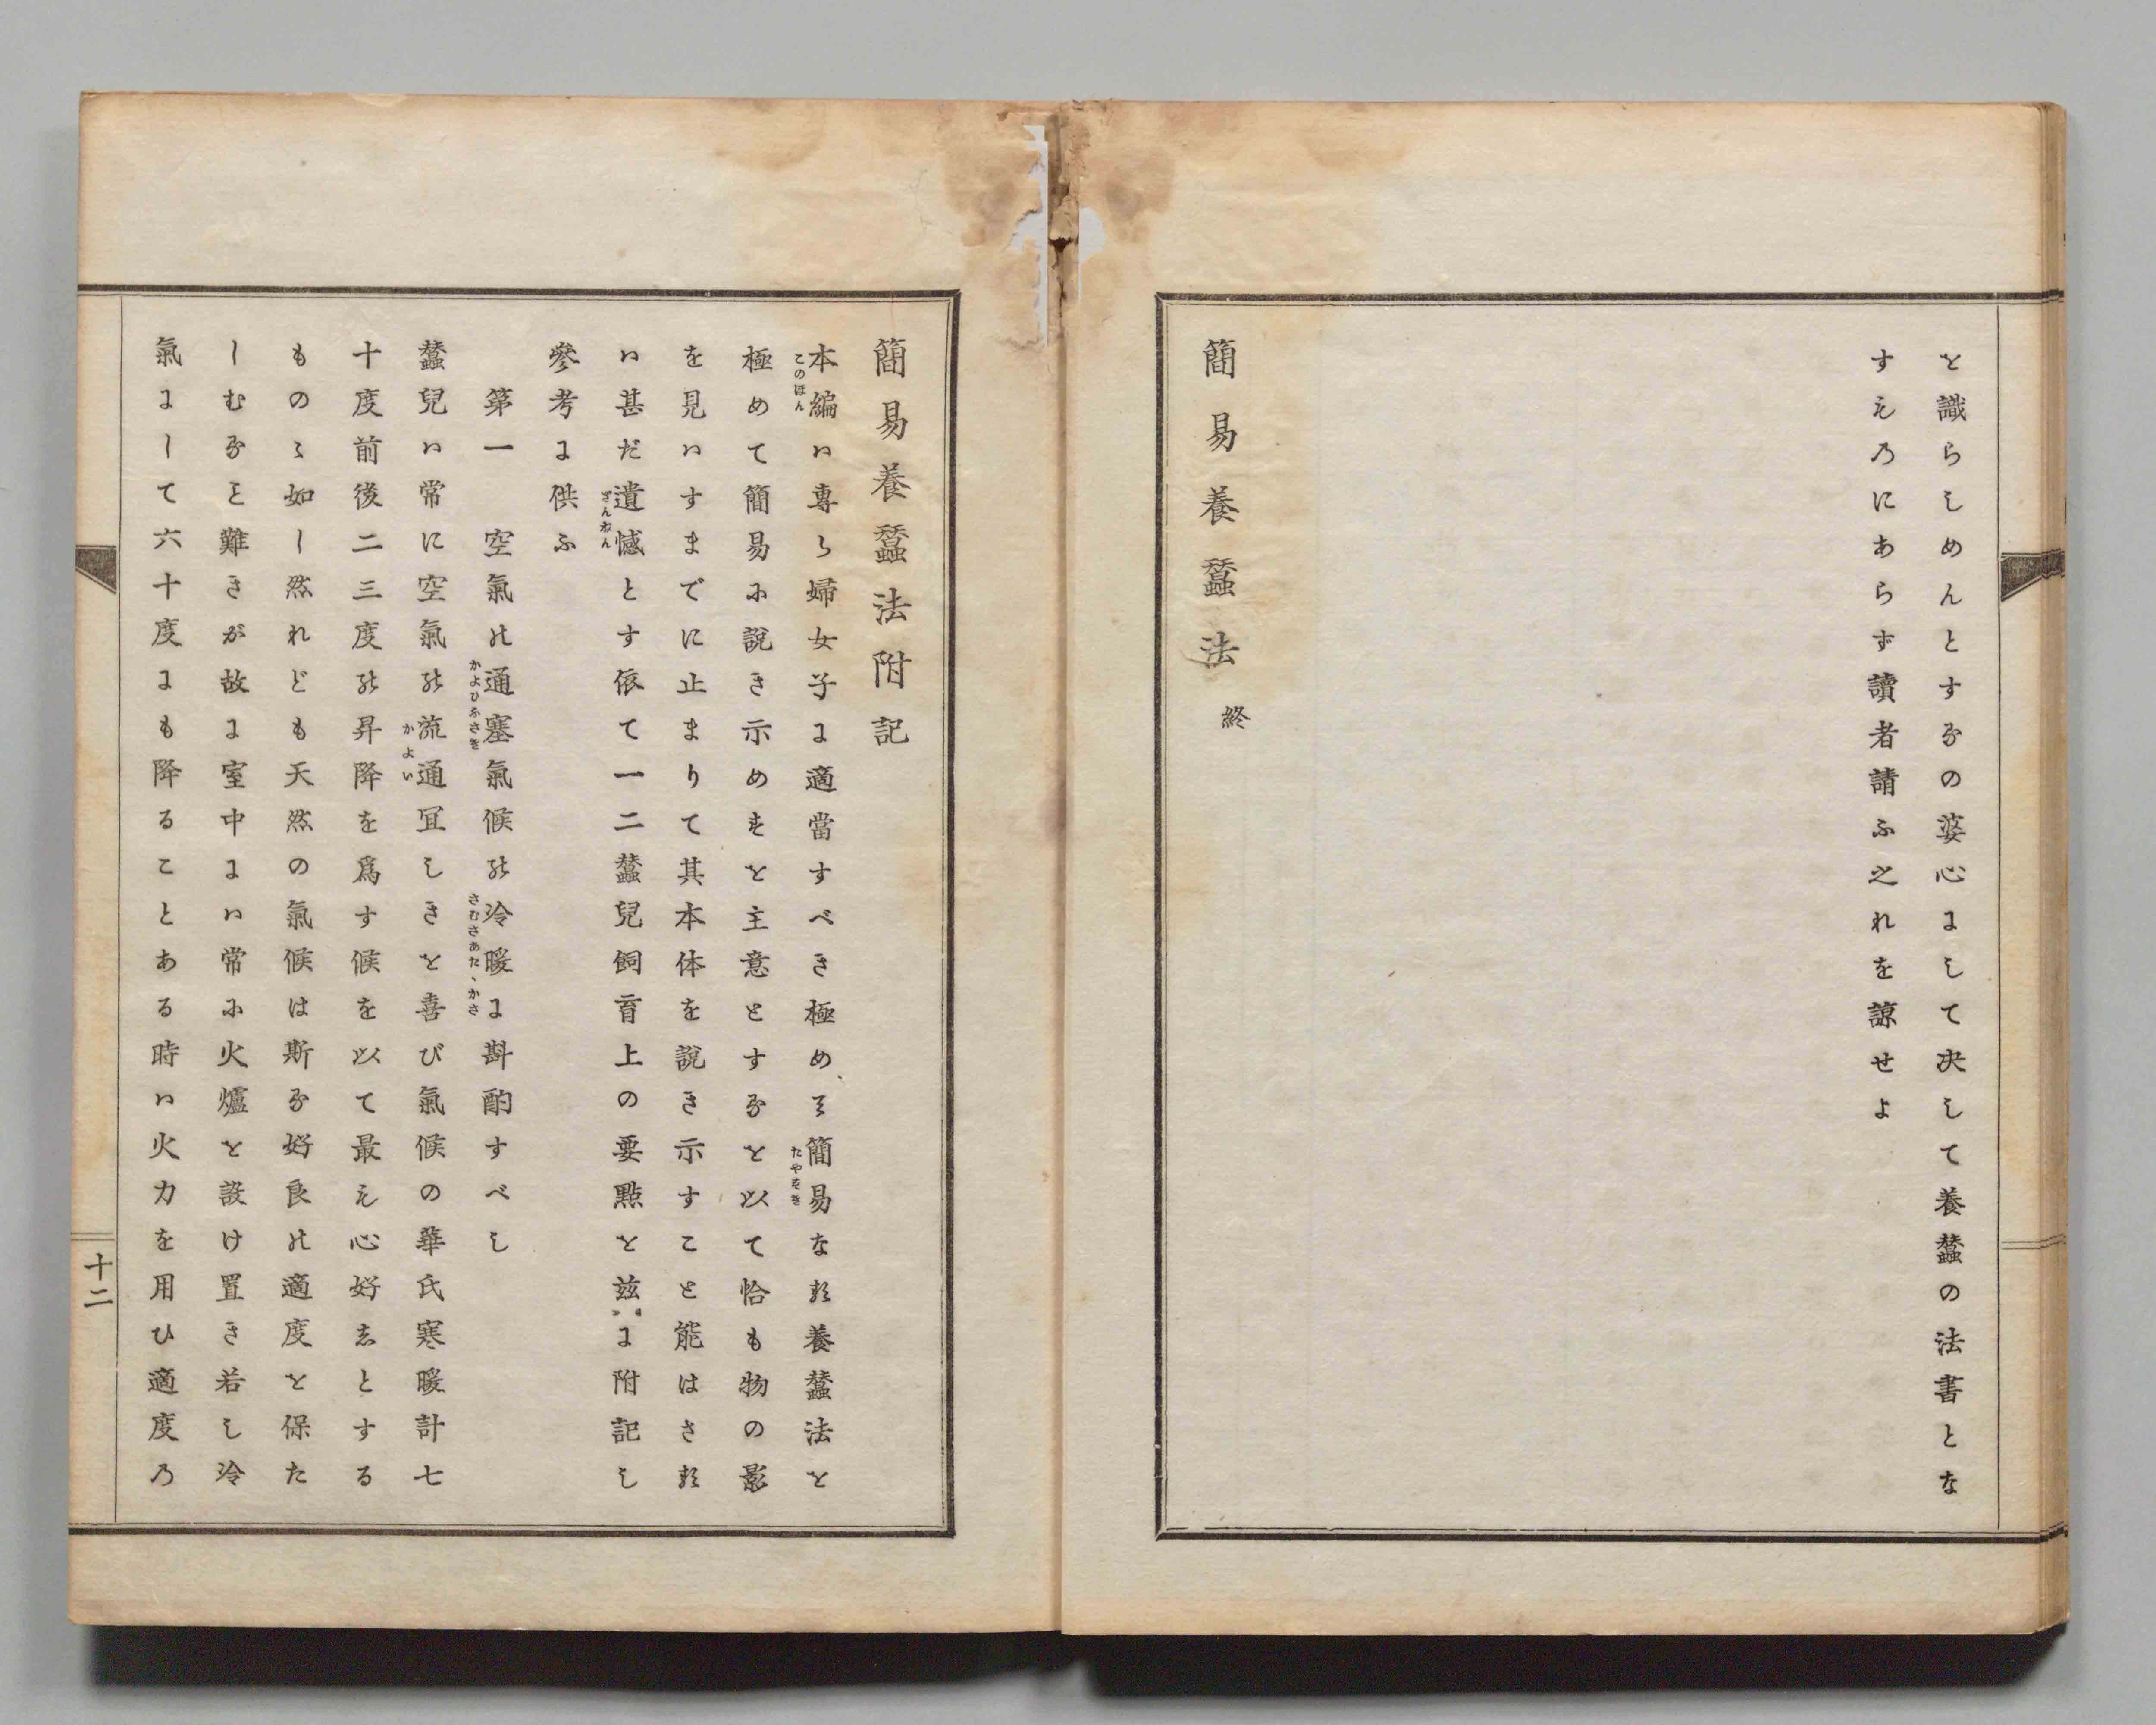 を識らしめんとするの婆心にして决して養蠶の法書とな
すものにあらず讀者請ふ之れを諒せよ
簡易養蠶法 終
簡易養蠶法附記
本編ハ專ら婦女子に適當すべき極めて簡易なる養蠶法を
このほん
たやすき
極めて簡易に說き示めすを主意とするを以て恰も物の影
を見ハすまでに止まりて其本体を說き示すこと能はさる
ハ甚だ遺憾とす依て一二蠶兒飼育上の要點を玆に附記し
ざんねん
參考に供ふ
第一 空氣の通塞氣候の冷暖に斟酌すべし
かよひふさぎ
さむさあたゝかさ
蠶兒ハ常に空氣の流通宜しきを喜び氣候の華氏寒暖計七
かよい
十度前後二三度の昇降を爲す候を以て最も心好しとする
ものゝ如し然れども天然の氣候は斯る好良の適度を保た
しむること難きが故に室中にハ常に火爐を設け置き若し冷
氣にして六十度にも降ることある時ハ火力を用ひ適度の
十二